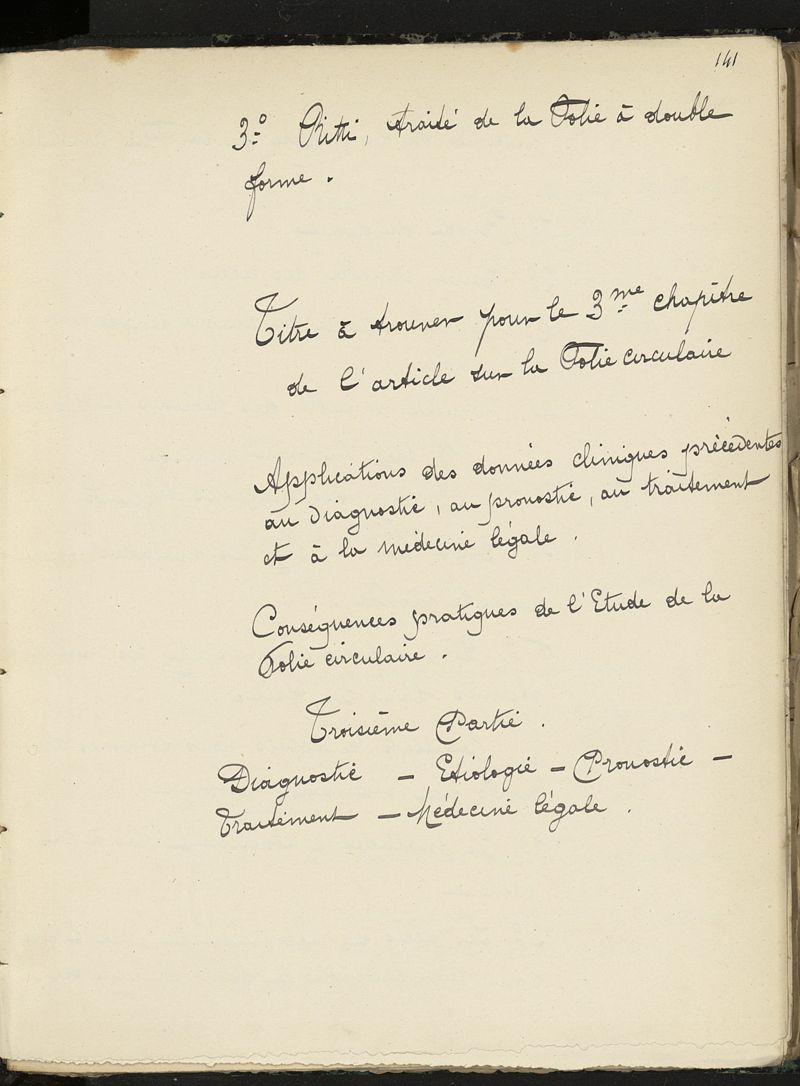 141
3º Ritti, traité de la Folie à double
forme.
Titre à trouver pour le 3me chapitre
de l'article sur la Folie circulaire
Applications des données cliniques précédentes
au Diagnostic, au pronostic, au traitement
et à la médecine légale.
Conséquences pratiques de l'Etude de la
Folie circulaire.
Troisième Partie.
Diagnostic — Etiologie — Pronostic —
Traitement — Médecine légale.